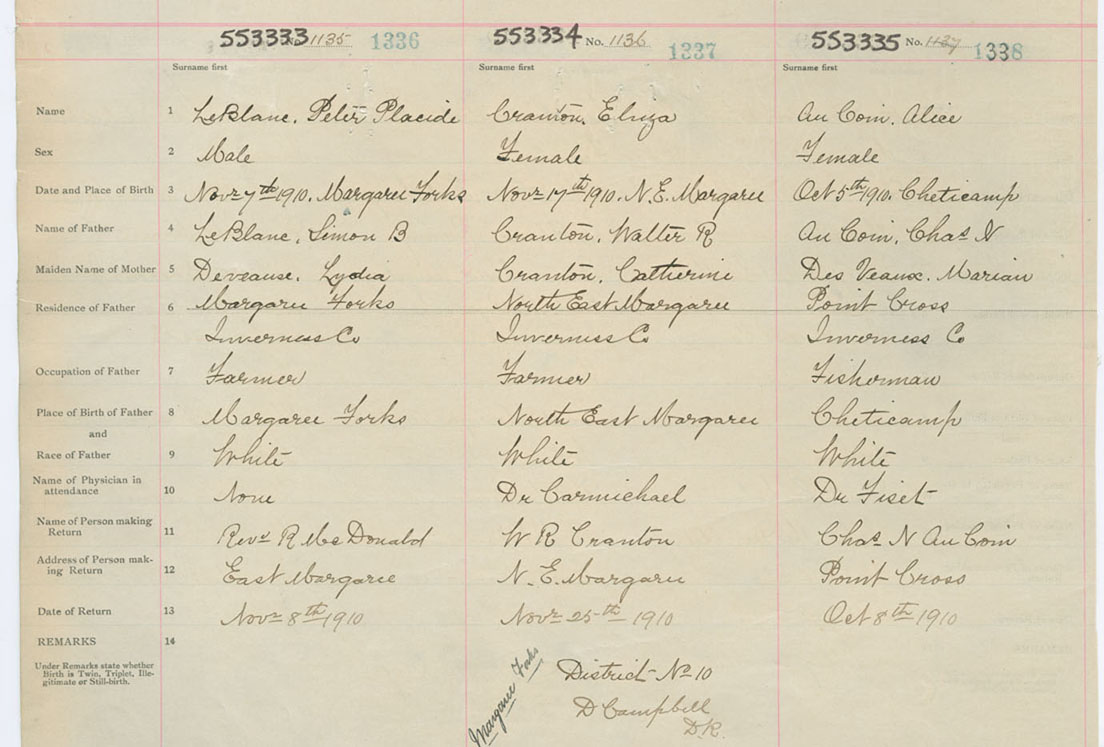 553333 No. 1135 1336 553334 No. 1136 1337 553335 No. 1137 1338
Surname first Surname first Surname first
Name 1 LeBlanc, Peter Placide Cranton, Eliza Au Coin, Alice
Sex 2 Male Female Female
Date and Place of Birth 3 Novr 7th 1910, Margaree Forks Novr 17th 1910. N.E. Margaree Oct 5th 1910, Cheticamp
Name of Father 4 LeBlanc, Simon B Cranton, Walter R Au Coin, Chas N
Maiden Name of Mother 5 Deveause, Lydia Cranton, Catherine Des Veaux. Marian
Residence of Father 6 Margaree Forks North East Margaree Point Cross
Inverness Co Inverness Co Inverness Co
Occupation of Father 7 Farmer Farmer Fisherman
Place of Birth of Father 8 Margaree Forks North East Margaree Cheticamp
and
Race of Father 9 White White White
Name of Physician in
attendance 10 None Dr Carmichael Dr Fiset
Name of Person making
Return 11 Revd R McDonald W R Cranton Chas N Au Coin
Address of Person mak-
ing Return 12 East Margaree N.E. Margaree Point Cross
Date of Return 13 Novr 8th 1910 Novr 25th 1910 Oct 8th 1910
REMARKS 14
Under Remarks state whether
Birth is Twin, Triplet, Ille-
gitimate or Still-birth.
Margaree Forks
District No 10
D Campbell
D.R.